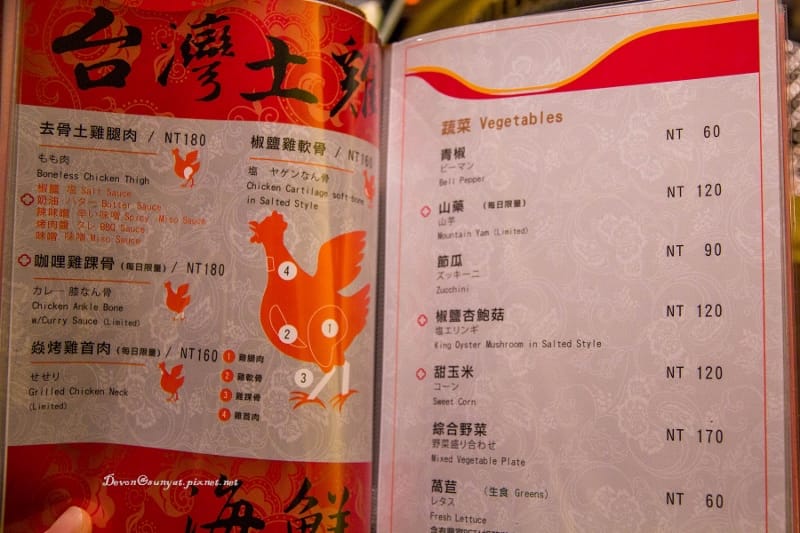 台灣土雞
去骨土雞腿肉 / NT180
もも肉
Boneless Chicken Thigh
椒鹽 塩 Salt Sauce
奶油 バター Butter Sauce
辣味噌 辛い味噌 Spicy Miso Sauce
烤肉醬 タレ BBQ Sauce
味噌 味噌 Miso Sauce
咖哩雞踝骨 (每日限量) / NT180
カレー 膝なん骨
Chicken Ankle Bone
w/Curry Sauce (Limited)
焱烤雞首肉 (每日限量) / NT160
せせり
Grilled Chicken Neck
(Limited)
椒鹽雞軟骨 / NT160
塩 ヤゲンなん骨
Chicken Cartilage soft-bone
in Salted Style
4
2
1
3
1 雞腿肉
2 雞軟骨
3 雞踝骨
4 雞首肉
海鮮
Devon@sunyat.pixnet.net
蔬菜 Vegetables
青椒 NT 60
ピーマン
Bell Pepper
山藥 (每日限量) NT 120
山芋
Mountain Yam (Limited)
節瓜 NT 90
ズッキーニ
Zucchini
椒鹽杏鮑菇 NT 120
塩エリンギ
King Oyster Mushroom in Salted Style
甜玉米 NT 120
コーン
Sweet Corn
綜合野菜 NT 170
野菜盛り合わせ
Mixed Vegetable Plate
萵苣 (生食 Greens) NT 60
レタス
Fresh Lettuce